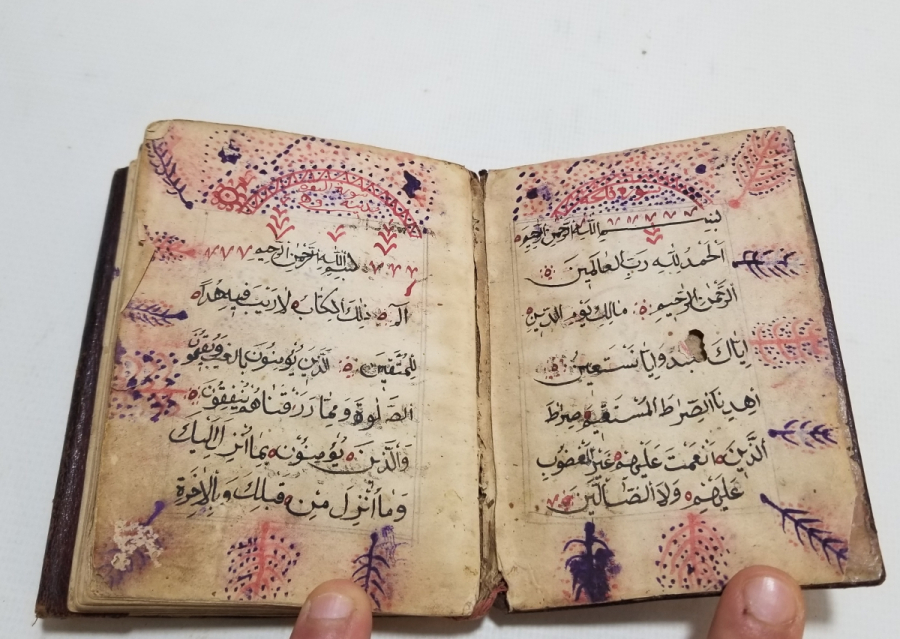 بسم الله الرحمن الرحيم
الحمد لله رب العالمين
الرحمن الرحيم مالك يوم الدين
اياك نستعين
اهدنا الصراط المستقيم صراط
الذين انعمت عليهم غير المغضوب
عليهم ولا الضالين
سورة البقرة
بسم الله الرحمن الرحيم
الم ذلك الكتاب لا ريب فيه هدى
للمتقين الذين يؤمنون بالغيب ويقيمون
الصلوة ومما رزقناهم ينفقون
والذين يؤمنون بما انزل اليك
وما انزل من قبلك وبالاخرة